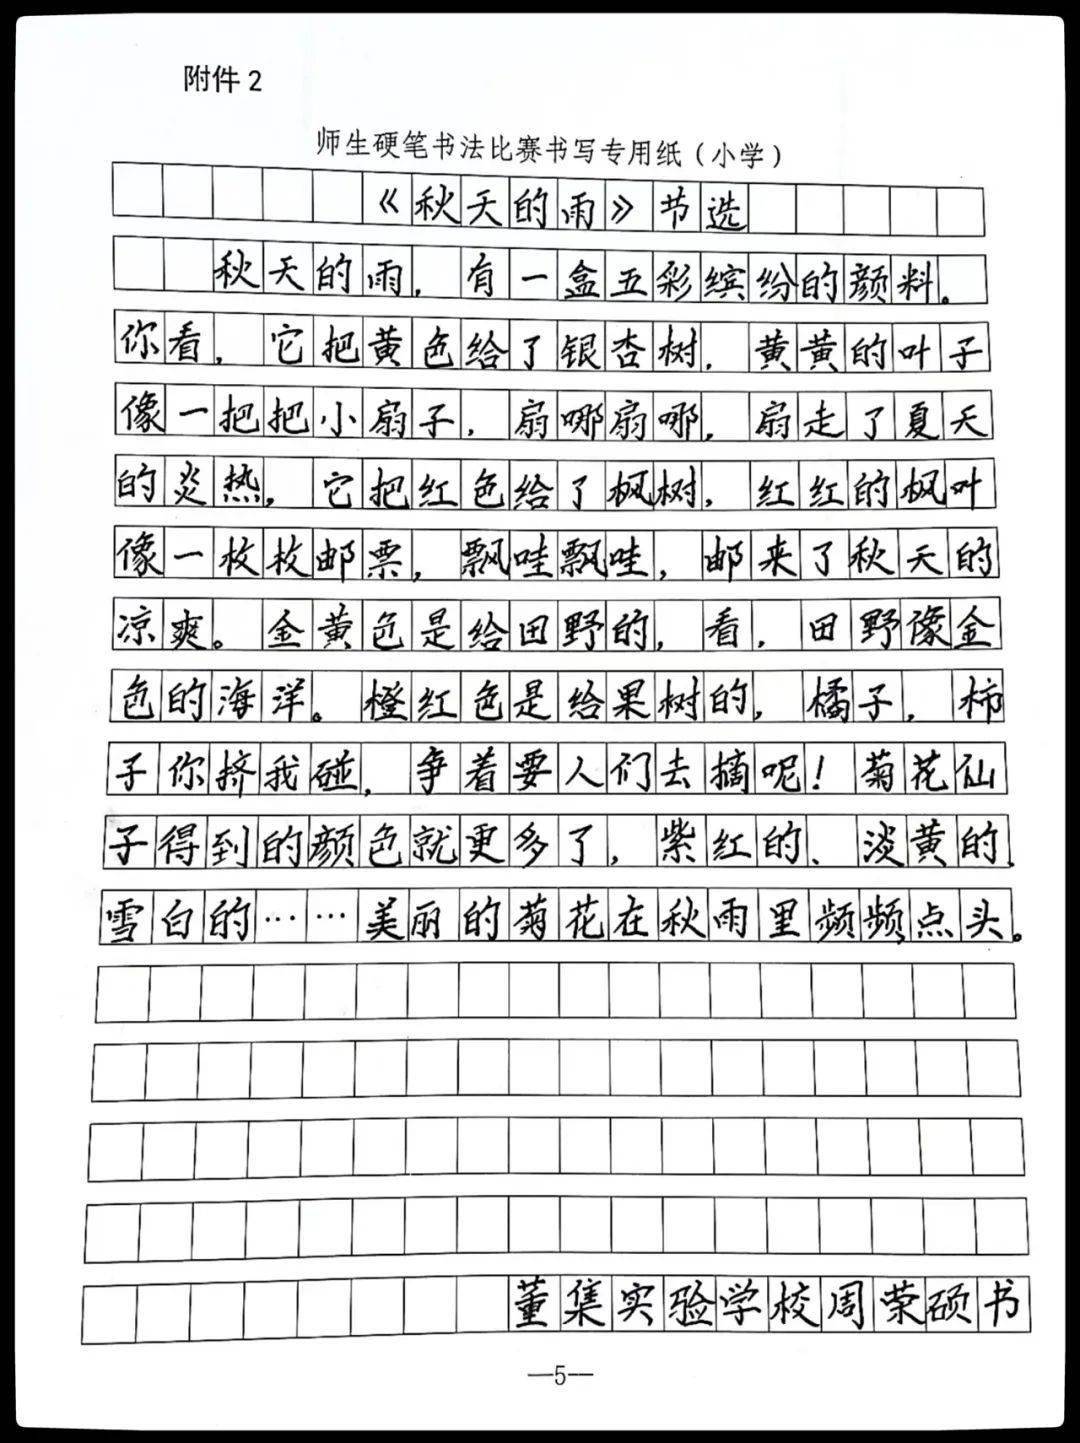 附件2
师生硬笔书法比赛书写专用纸（小学）
《秋天的雨》节选
秋天的雨，有一盒五彩缤纷的颜料。
你看，它把黄色给了银杏树，黄黄的叶子
像一把把小扇子，扇哪扇哪，扇走了夏天
的炎热，它把红色给了枫树，红红的枫叶
像一枚枚邮票，飘哇飘哇，邮来了秋天的
凉爽。金黄色是给田野的，看，田野像金
色的海洋。橙红色是给果树的，橘子，柿
子你挤我碰，争着要人们去摘呢！菊花仙
子得到的颜色就更多了，紫红的、淡黄的、
雪白的……美丽的菊花在秋雨里频频点头。
董集实验学校周荣硕书
—5—